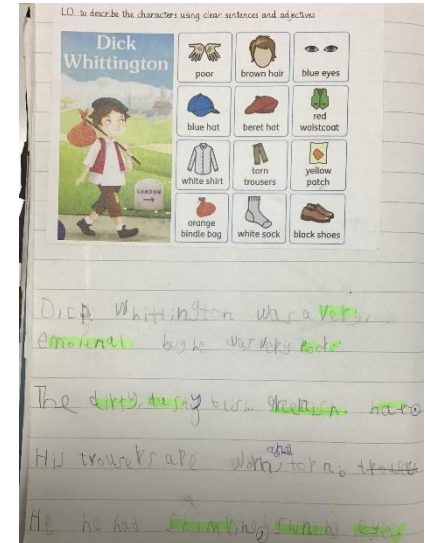 LO. to describe the characters using clear sentences and adjectives
Dick
Whittington
poor
brown hair
blue eyes
blue hat
beret hat
red
waistcoat
white shirt
torn
trousers
yellow
patch
LONDON
orange
bindle bag
white sock
black shoes
Dick Whittington was a very,
emoienal boy he was very
The dirty, dusty greenish. hat.
His trousers are worn and torn.
He he had